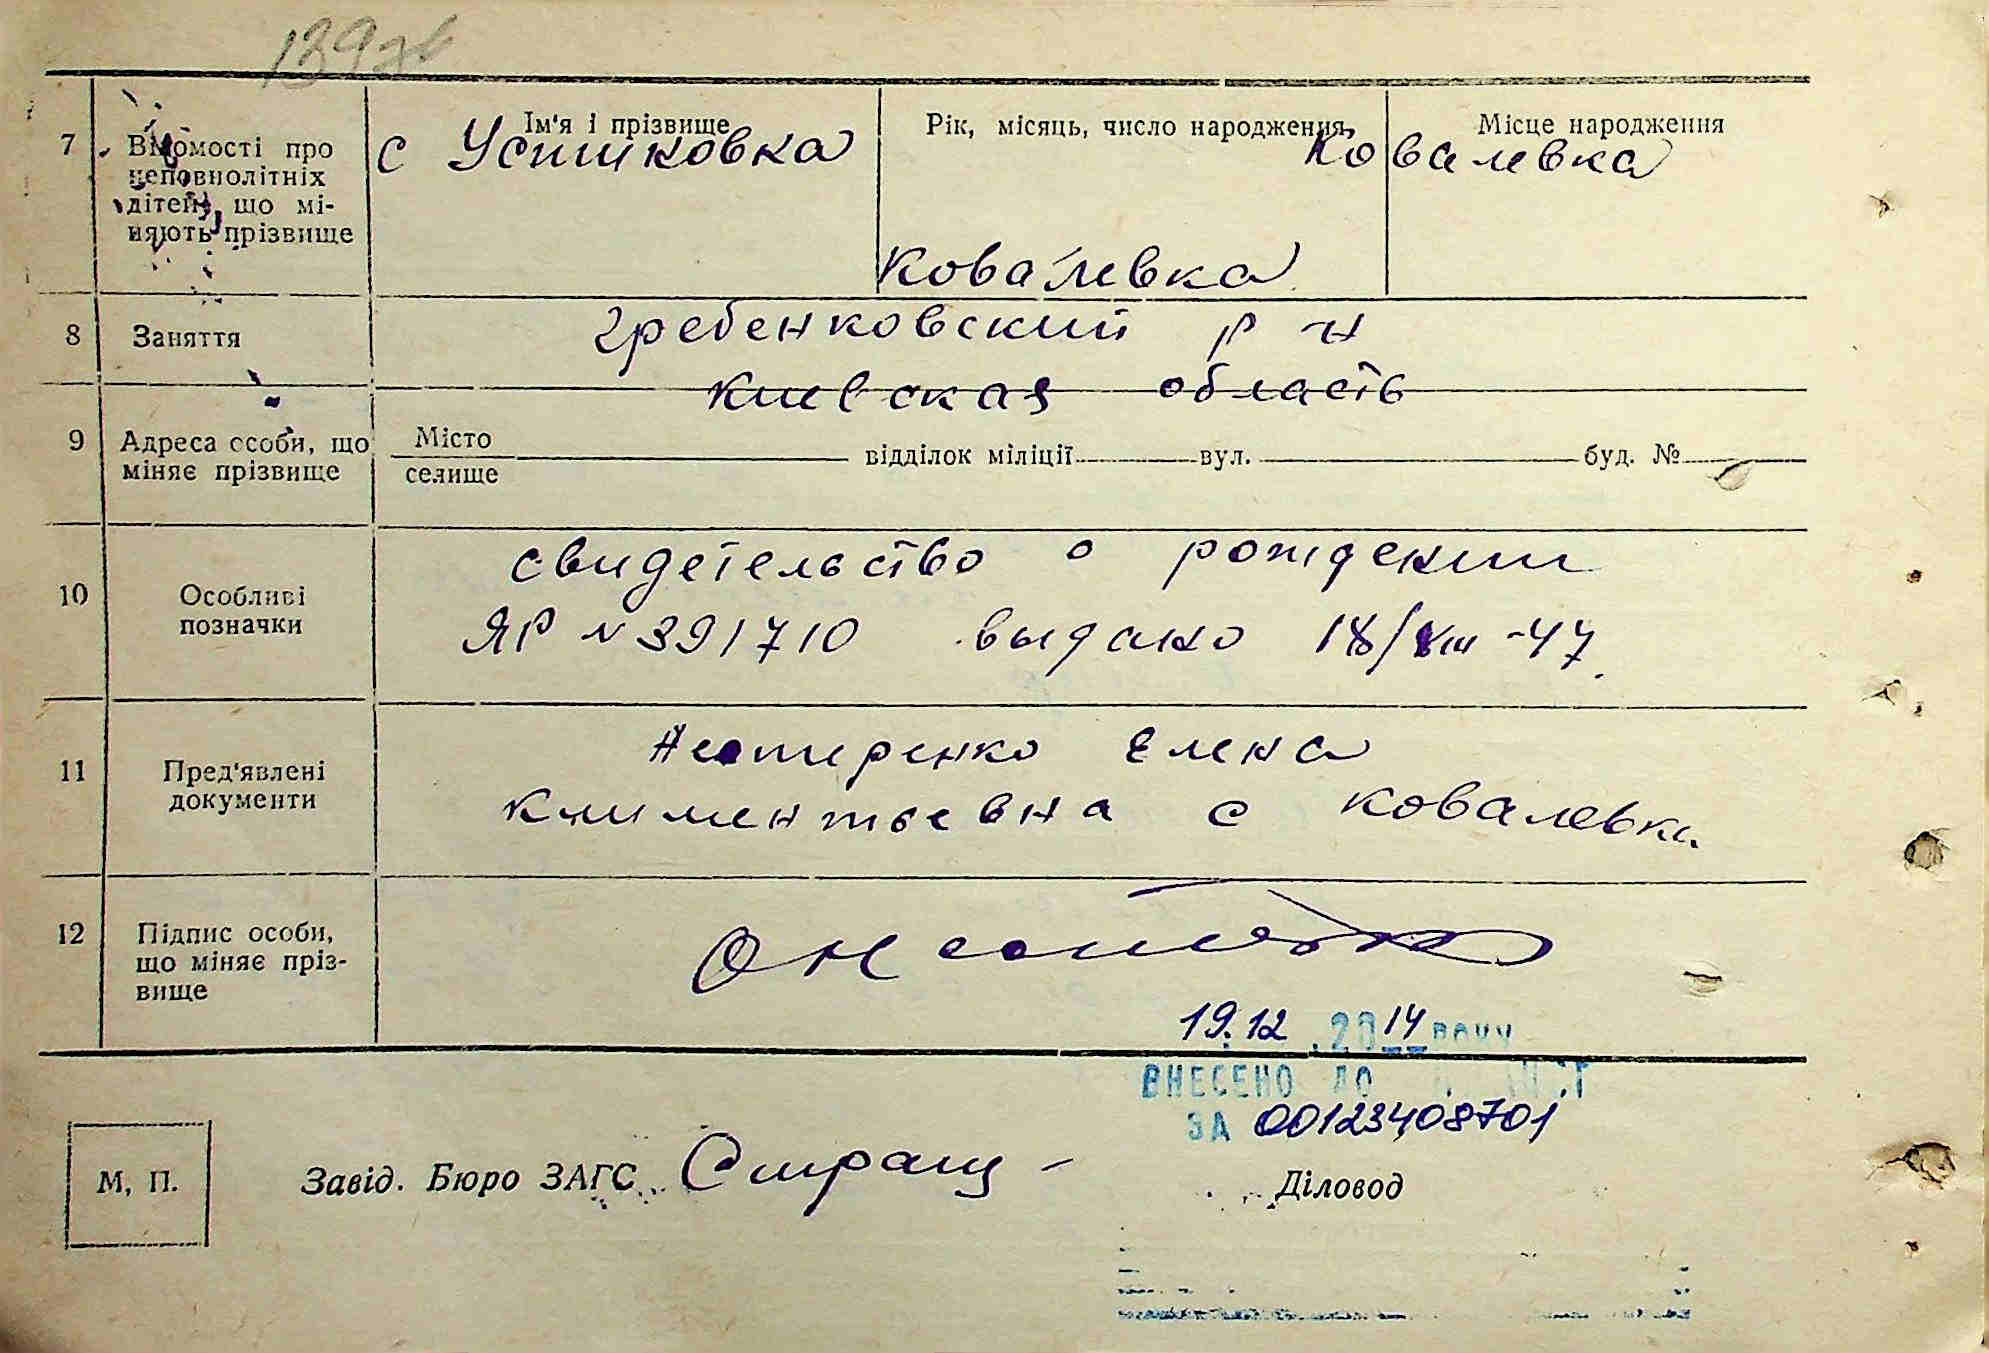 139зв
7 Відомості про неповнолітніх дітей, що міняють прізвище
Ім'я і прізвище Рік, місяць, число народження Місце народження
с Усишковка Ковалевка
Ковалевка
8 Заняття
гребенковский р н
киевская область
9 Адреса особи, що міняє прізвище
Місто
селище
відділок міліції вул. буд. №
10 Особливі позначки
свидетельство о рождении
ЯР N 391710 выдано 18/VIII-47
11 Пред'явлені документи
Нестеренко Елена
климентьевна с ковалевка
12 Підпис особи, що міняє прізвище
19.12.2014 року
ВНЕСЕНО ДО
ЗА 00123408701
М, П. Завід. Бюро ЗАГС Діловод